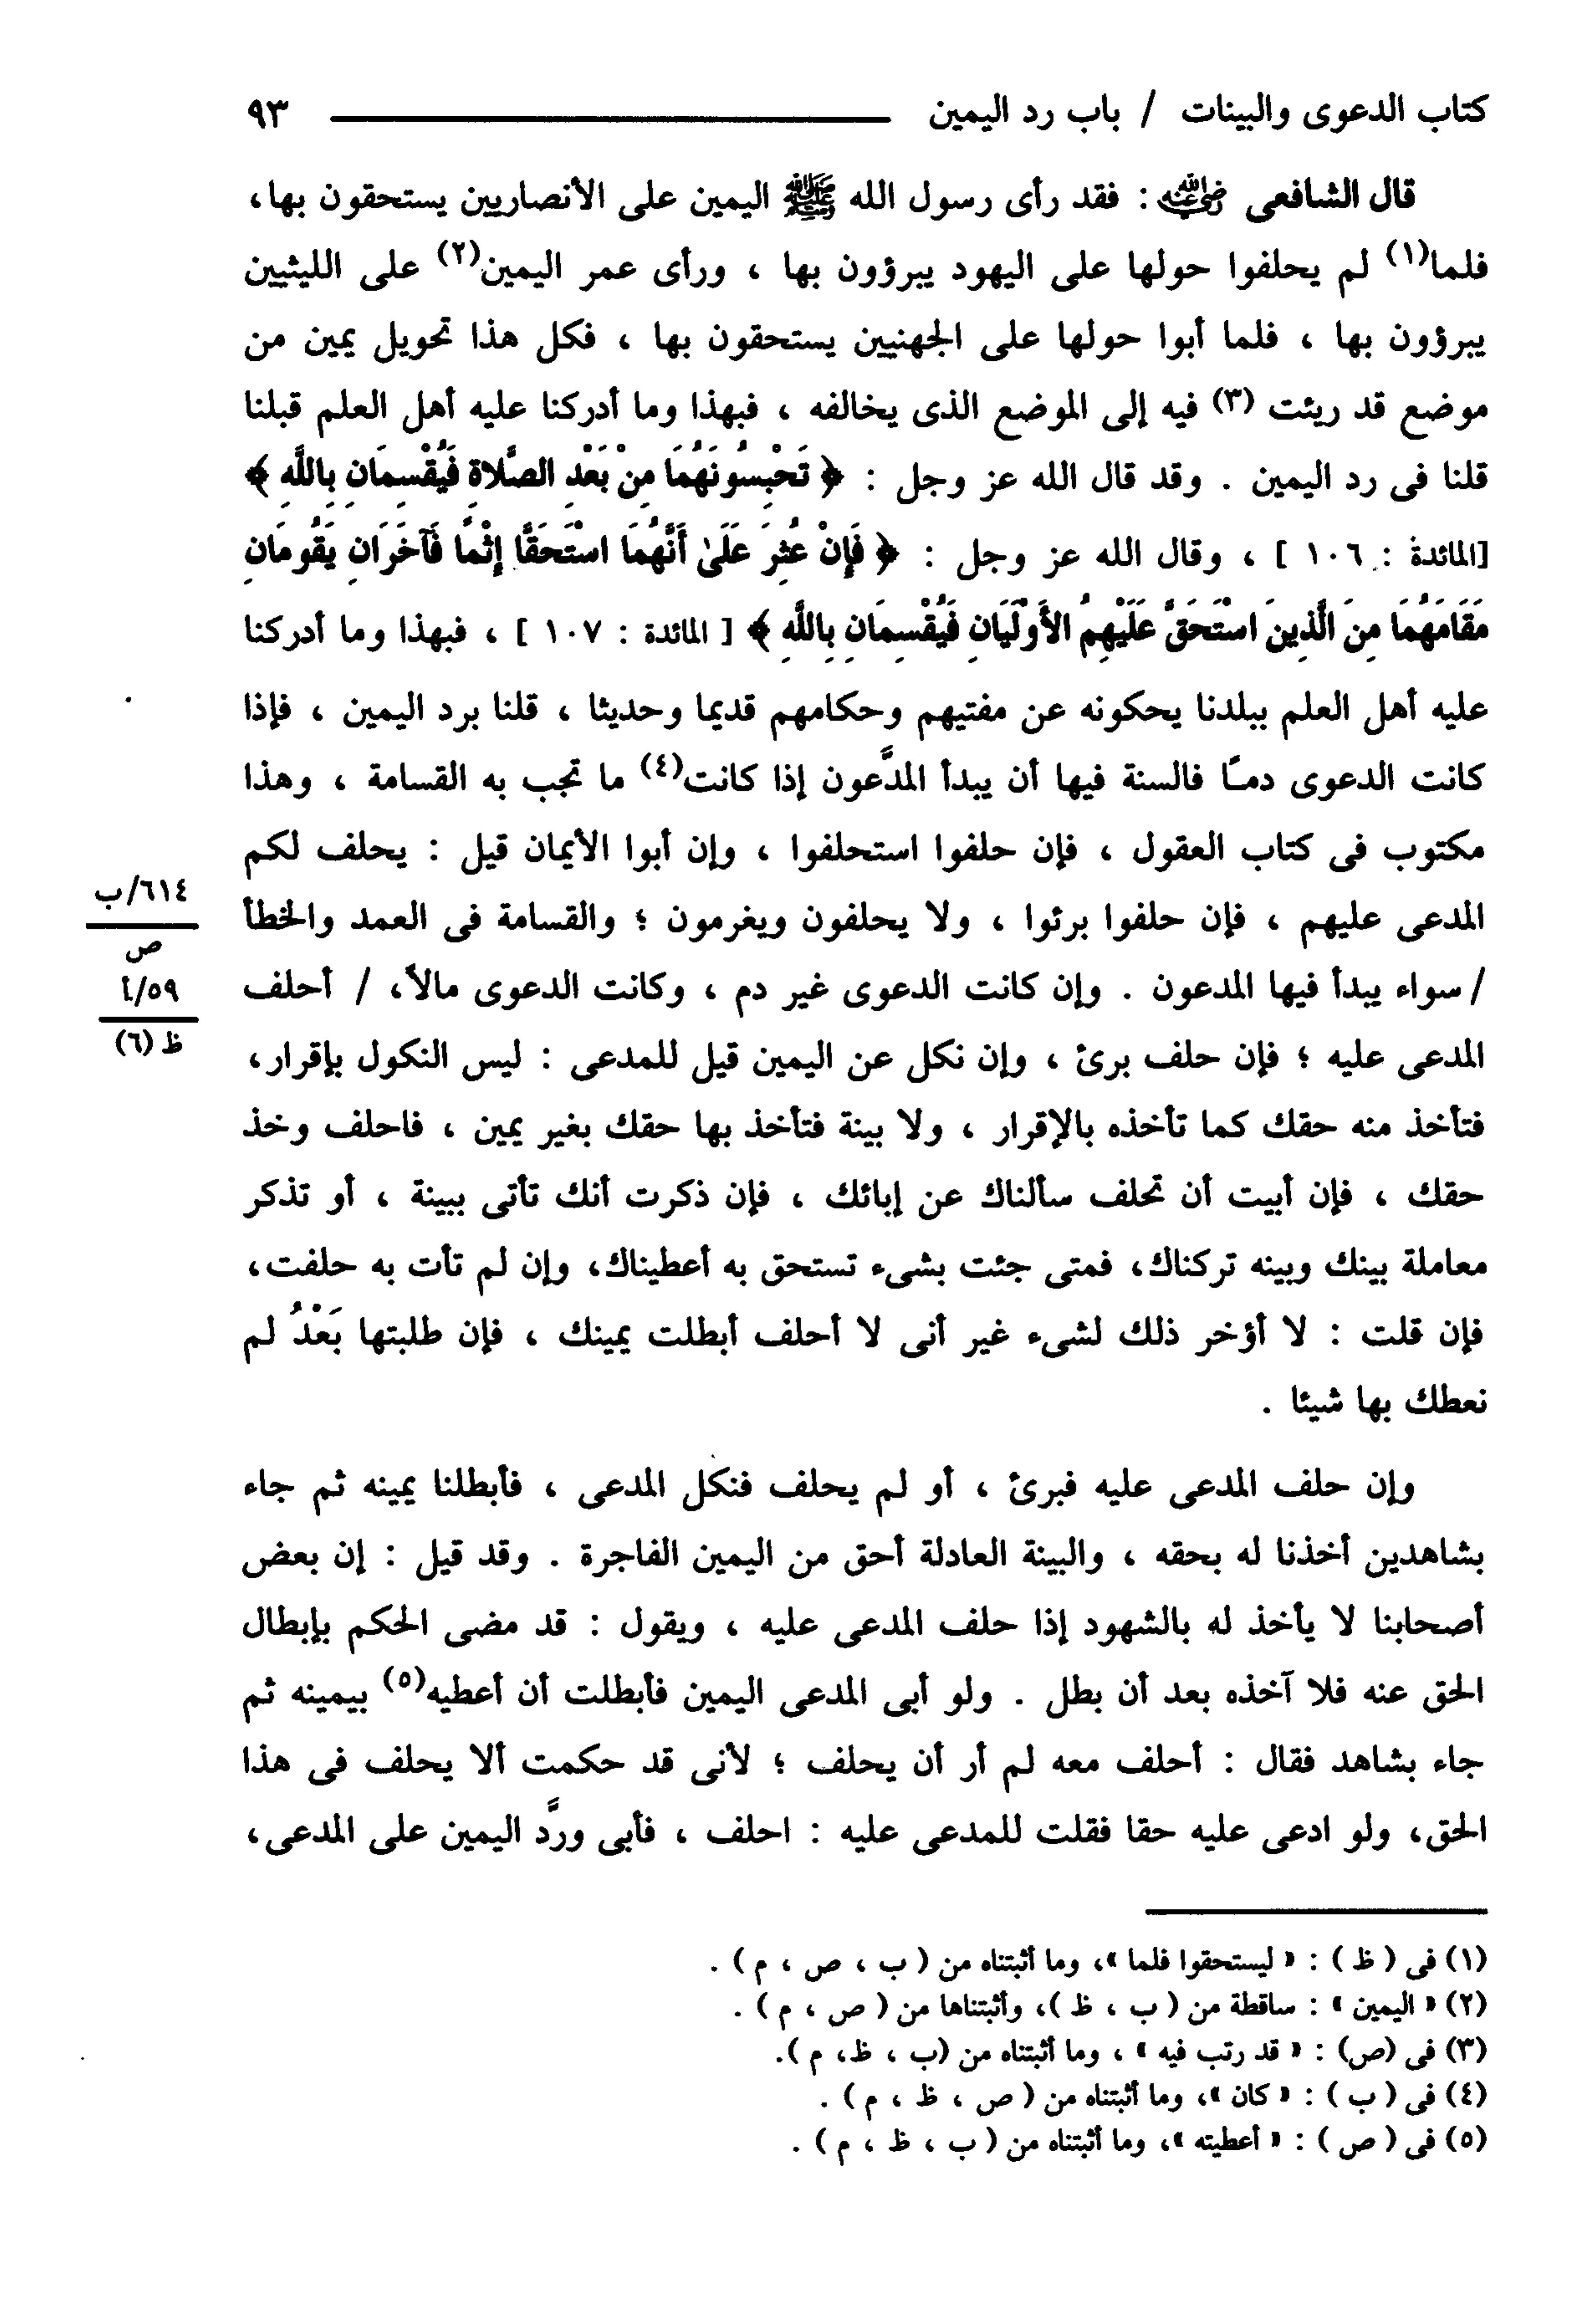 كتاب الدعوى والبينات / باب رد اليمين ٩٣
قال الشافعى رضي الله عنه : فقد رأى رسول الله ﷺ اليمين على الأنصاريين يستحقون بها،
فلما(١) لم يحلفوا حولها على اليهود يبرؤون بها ، ورأى عمر اليمين(٢) على الليثيين
يبرؤون بها ، فلما أبوا حولها على الجهنيين يستحقون بها ، فكل هذا تحويل يمين من
موضع قد ريئت (٣) فيه إلى الموضع الذى يخالفه ، فبهذا وما أدركنا عليه أهل العلم قبلنا
قلنا فى رد اليمين . وقد قال الله عز وجل : ﴿ تَحْبِسُونَهُمَا مِنْ بَعْدِ الصَّلاةِ فَيُقْسِمَانِ بِاللَّهِ ﴾
[المائدة : ١٠٦ ] ، وقال الله عز وجل : ﴿ فَإِنْ عُثِرَ عَلَىٰ أَنَّهُمَا اسْتَحَقَّا إِثْمًا فَآخَرَانِ يَقُومَانِ
مَقَامَهُمَا مِنَ الَّذِينَ اسْتَحَقَّ عَلَيْهِمُ الأَوْلَيَانِ فَيُقْسِمَانِ بِاللَّهِ ﴾ [ المائدة : ١٠٧ ] ، فبهذا وما أدركنا
عليه أهل العلم ببلدنا يحكونه عن مفتيهم وحكامهم قديما وحديثا ، قلنا برد اليمين ، فإذا
كانت الدعوى دمًا فالسنة فيها أن يبدأ المدَّعون إذا كانت(٤) ما تجب به القسامة ، وهذا
مكتوب فى كتاب العقول ، فإن حلفوا استحلفوا ، وإن أبوا الأيمان قيل : يحلف لكم
المدعى عليهم ، فإن حلفوا برئوا ، ولا يحلفون ويغرمون ؛ والقسامة فى العمد والخطأ
/ سواء يبدأ فيها المدعون . وإن كانت الدعوى غير دم ، وكانت الدعوى مالاً، / أحلف
المدعى عليه ؛ فإن حلف برئ ، وإن نكل عن اليمين قيل للمدعى : ليس النكول بإقرار،
فتأخذ منه حقك كما تأخذه بالإقرار ، ولا بينة فتأخذ بها حقك بغير يمين ، فاحلف وخذ
حقك ، فإن أبيت أن تحلف سألناك عن إبائك ، فإن ذكرت أنك تأتى ببينة ، أو تذكر
معاملة بينك وبينه تركناك، فمتى جئت بشىء تستحق به أعطيناك، وإن لم تأت به حلفت،
فإن قلت : لا أؤخر ذلك لشىء غير أنى لا أحلف أبطلت يمينك ، فإن طلبتها بَعْدُ لم
نعطك بها شيئا .
٦١٤/ب
ص
٥٩/أ
ظ (٦)
وإن حلف المدعى عليه فبرئ ، أو لم يحلف فنكل المدعى ، فأبطلنا يمينه ثم جاء
بشاهدين أخذنا له بحقه ، والبينة العادلة أحق من اليمين الفاجرة . وقد قيل : إن بعض
أصحابنا لا يأخذ له بالشهود إذا حلف المدعى عليه ، ويقول : قد مضى الحكم بإبطال
الحق عنه فلا آخذه بعد أن بطل . ولو أبى المدعى اليمين فأبطلت أن أعطيه(٥) بيمينه ثم
جاء بشاهد فقال : أحلف معه لم أر أن يحلف ؛ لأنى قد حكمت ألا يحلف فى هذا
الحق، ولو ادعى عليه حقا فقلت للمدعى عليه : احلف ، فأبى وردَّ اليمين على المدعى،
(١) فى ( ظ ) : « ليستحقوا فلما »، وما أثبتناه من ( ب ، ص ، م ) .
(٢) « اليمين » : ساقطة من ( ب ، ظ )، وأثبتناها من ( ص ، م ) .
(٣) فى (ص) : « قد رتب فيه » ، وما أثبتناه من (ب ، ظ، م ).
(٤) فى ( ب ) : « كان »، وما أثبتناه من ( ص ، ظ ، م ) .
(٥) فى ( ص ) : « أعطيته »، وما أثبتناه من ( ب ، ظ ، م ) .